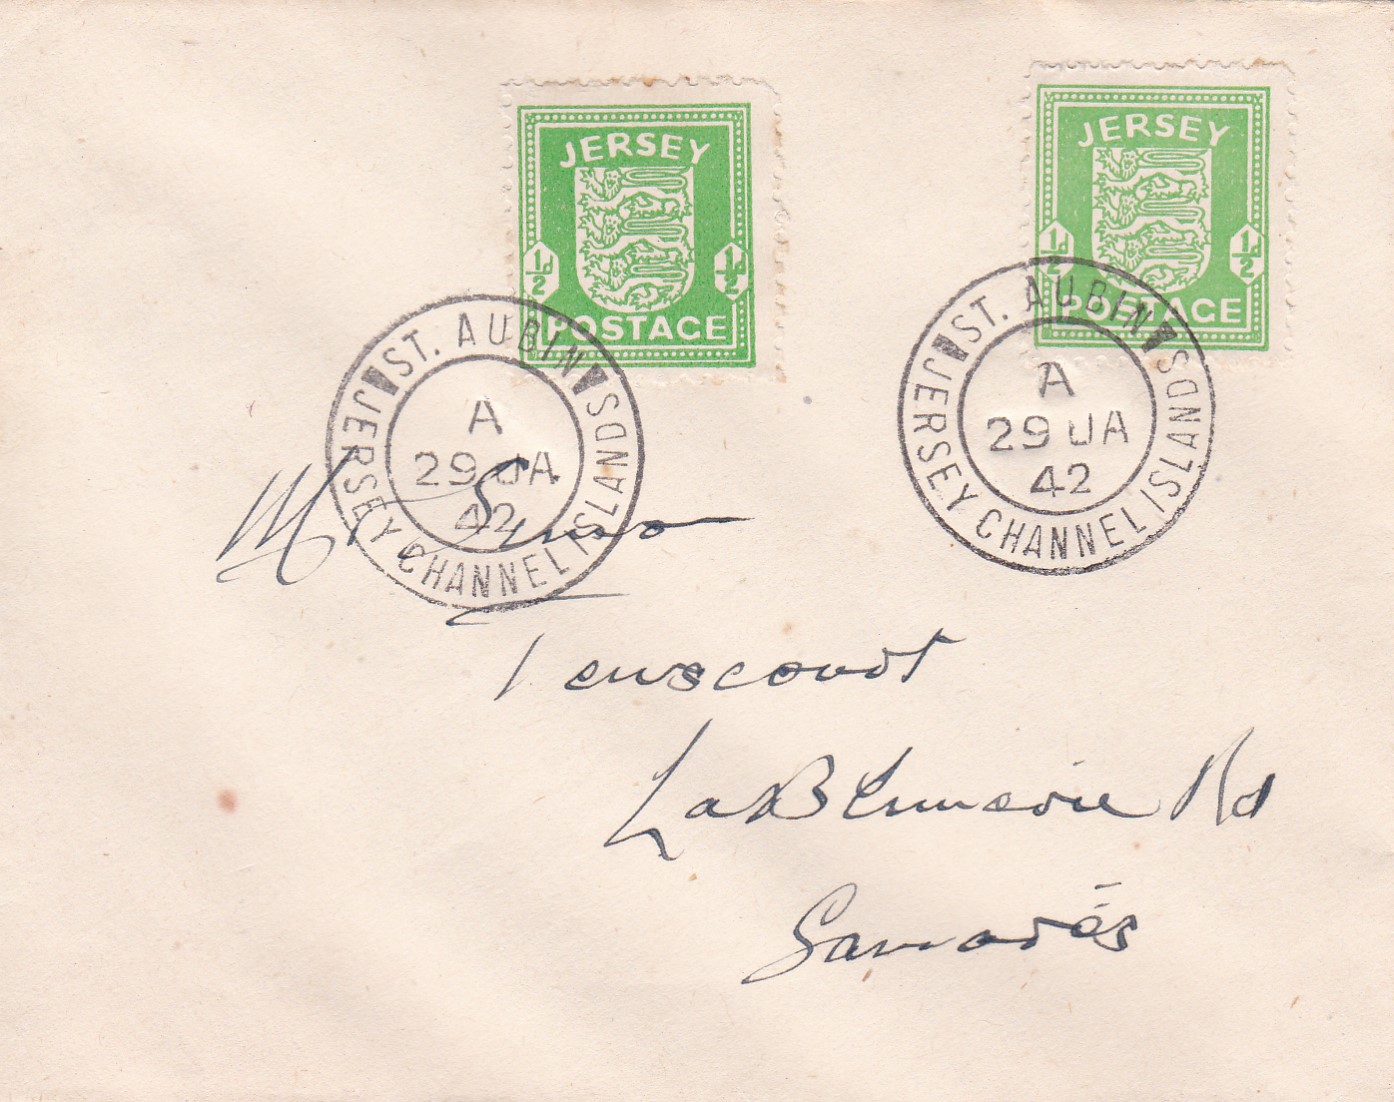 JERSEY
½d ½d
POSTAGE
JERSEY
½d ½d
POSTAGE
ST. AUBIN
A
29 JA
42
JERSEY CHANNEL ISLANDS
ST. AUBIN
A
29 JA
42
JERSEY CHANNEL ISLANDS
Mr
La Blinerie Rd
Samarés